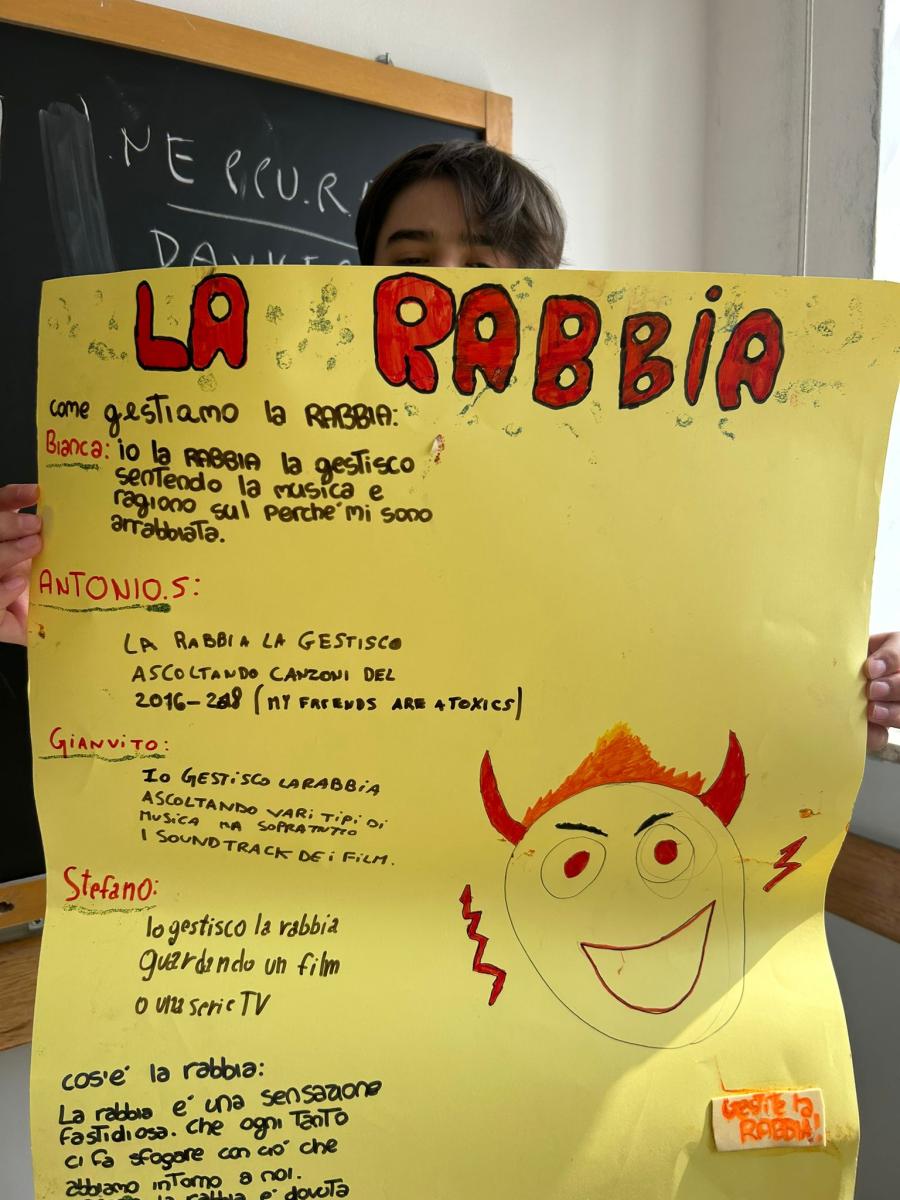 NE
LA RABBIA
come gestiamo la RABBIA:
Bianca: io la RABBIA la gestisco
sentendo la musica e
ragiono sul perche' mi sono
arrabbiata.
ANTONIO.S:
LA RABBIA LA GESTISCO
ASCOLTANDO CANZONI DEL
2016-208 (MY FRIENDS ARE A TOXICS)
GIANVITO:
Io GESTISCO LA RABBIA
ASCOLTANDO VARI TIPI DI
MUSICA MA SOPRATUTTO
I SOUNDTRACK DEI FILM.
Stefano:
Io gestisco la rabbia
guardando un film
o una serie TV
cos'e' la rabbia:
La rabbia e' una sensazione
fastidiosa. che ogni tanto
ci fa sfogare con cio' che
abbiamo intorno a noi.
la rabbia e' dovuta
Gestite la
RABBIA!